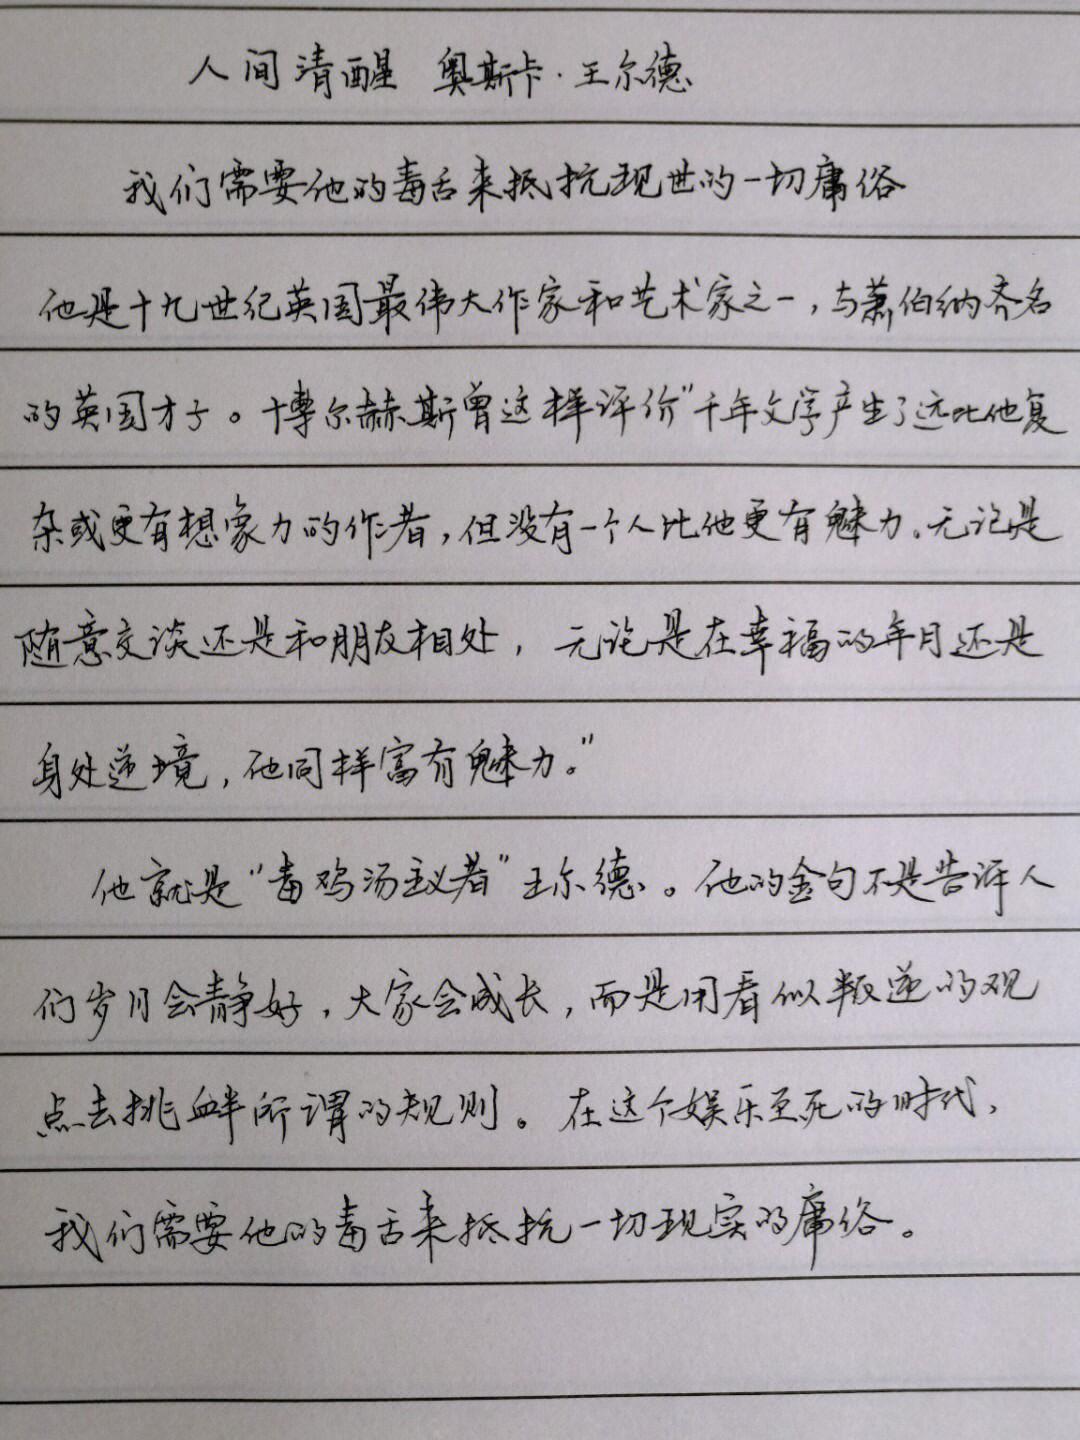 人间清醒 奥斯卡·王尔德
我们需要他的毒舌来抵抗现世的一切庸俗
他是十九世纪英国最伟大作家和艺术家之一,与萧伯纳齐名
的英国才子。博尔赫斯曾这样评价"千年文学产生了远比他复
杂或更有想象力的作者,但没有一个人比他更有魅力。无论是
随意交谈还是和朋友相处,无论是在幸福的年月还是
身处逆境,他同样富有魅力。"
他就是"毒鸡汤主义者"王尔德。他的金句不是告诉人
们岁月会静好,大家会成长,而是用看似叛逆的观
点去挑衅所谓的规则。在这个娱乐至死的时代,
我们需要他的毒舌来抵抗一切现实的庸俗。